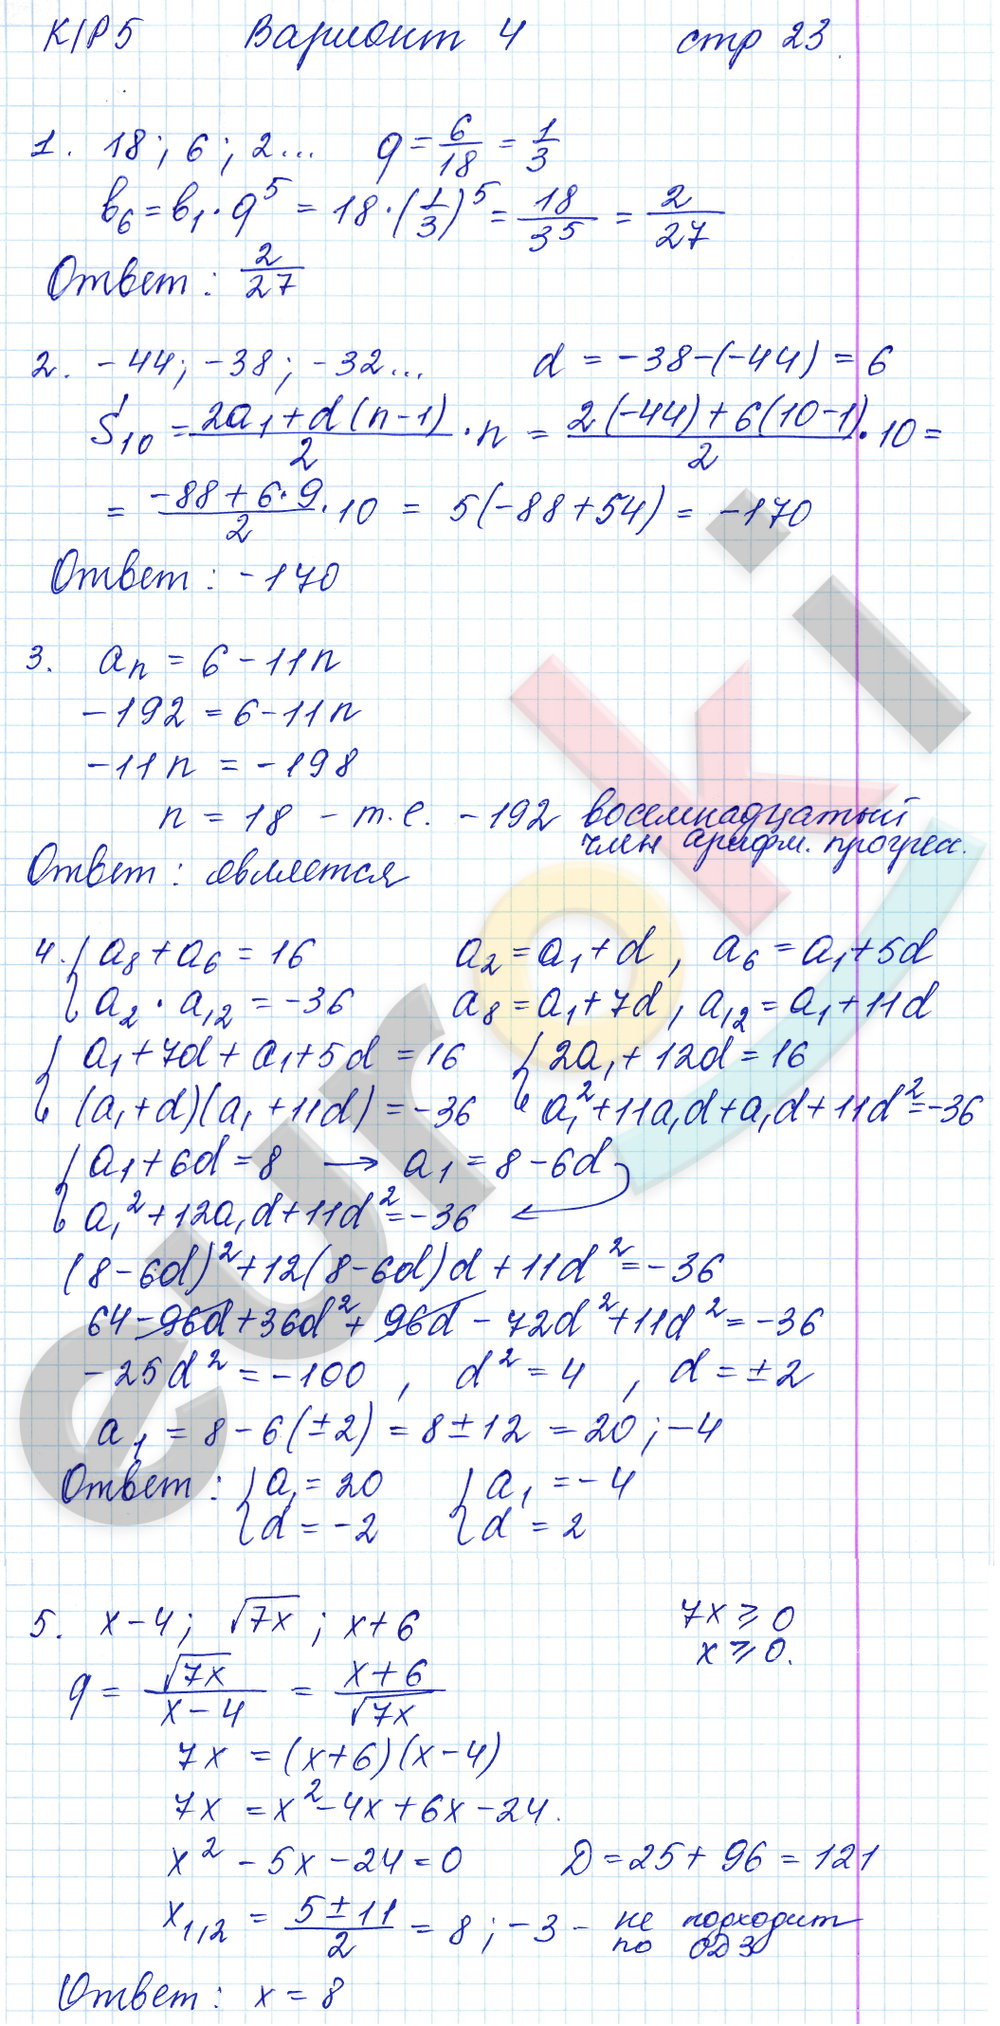 К/Р 5 Вариант 4 стр 23.
1. 18; 6; 2... q = 6/18 = 1/3
b₆ = b₁ · q⁵ = 18 · (1/3)⁵ = 18/3⁵ = 2/27
Ответ: 2/27
2. -44; -38; -32... d = -38-(-44) = 6
S₁₀ = (2a₁ + d(n-1))/2 · n = (2(-44) + 6(10-1))/2 · 10 =
= (-88 + 6·9)/2 · 10 = 5(-88+54) = -170
Ответ: -170
3. aₙ = 6 - 11n
-192 = 6 - 11n
-11n = -198
n = 18 - т.е. -192 восемнадцатый
член арифм. прогресс.
Ответ: является
4. { a₈ + a₆ = 16 a₂ = a₁ + d, a₆ = a₁ + 5d
{ a₂ · a₁₂ = -36 a₈ = a₁ + 7d, a₁₂ = a₁ + 11d
{ a₁ + 7d + a₁ + 5d = 16 { 2a₁ + 12d = 16
{ (a₁ + d)(a₁ + 11d) = -36 { a₁² + 11a₁d + a₁d + 11d² = -36
{ a₁ + 6d = 8 → a₁ = 8 - 6d
{ a₁² + 12a₁d + 11d² = -36 ←
(8 - 6d)² + 12(8 - 6d)d + 11d² = -36
64 - 96d + 36d² + 96d - 72d² + 11d² = -36
-25d² = -100, d² = 4, d = ±2
a₁ = 8 - 6(±2) = 8 ± 12 = 20; -4
Ответ: { a₁ = 20 { a₁ = -4
{ d = -2 { d = 2
5. x - 4; √7x; x + 6 7x ⩾ 0
x ⩾ 0.
q = √7x/(x - 4) = (x + 6)/√7x
7x = (x + 6)(x - 4)
7x = x² - 4x + 6x - 24.
x² - 5x - 24 = 0 D = 25 + 96 = 121
x₁,₂ = (5 ± 11)/2 = 8; -3 - не подходит
по ОДЗ
Ответ: x = 8
euroki